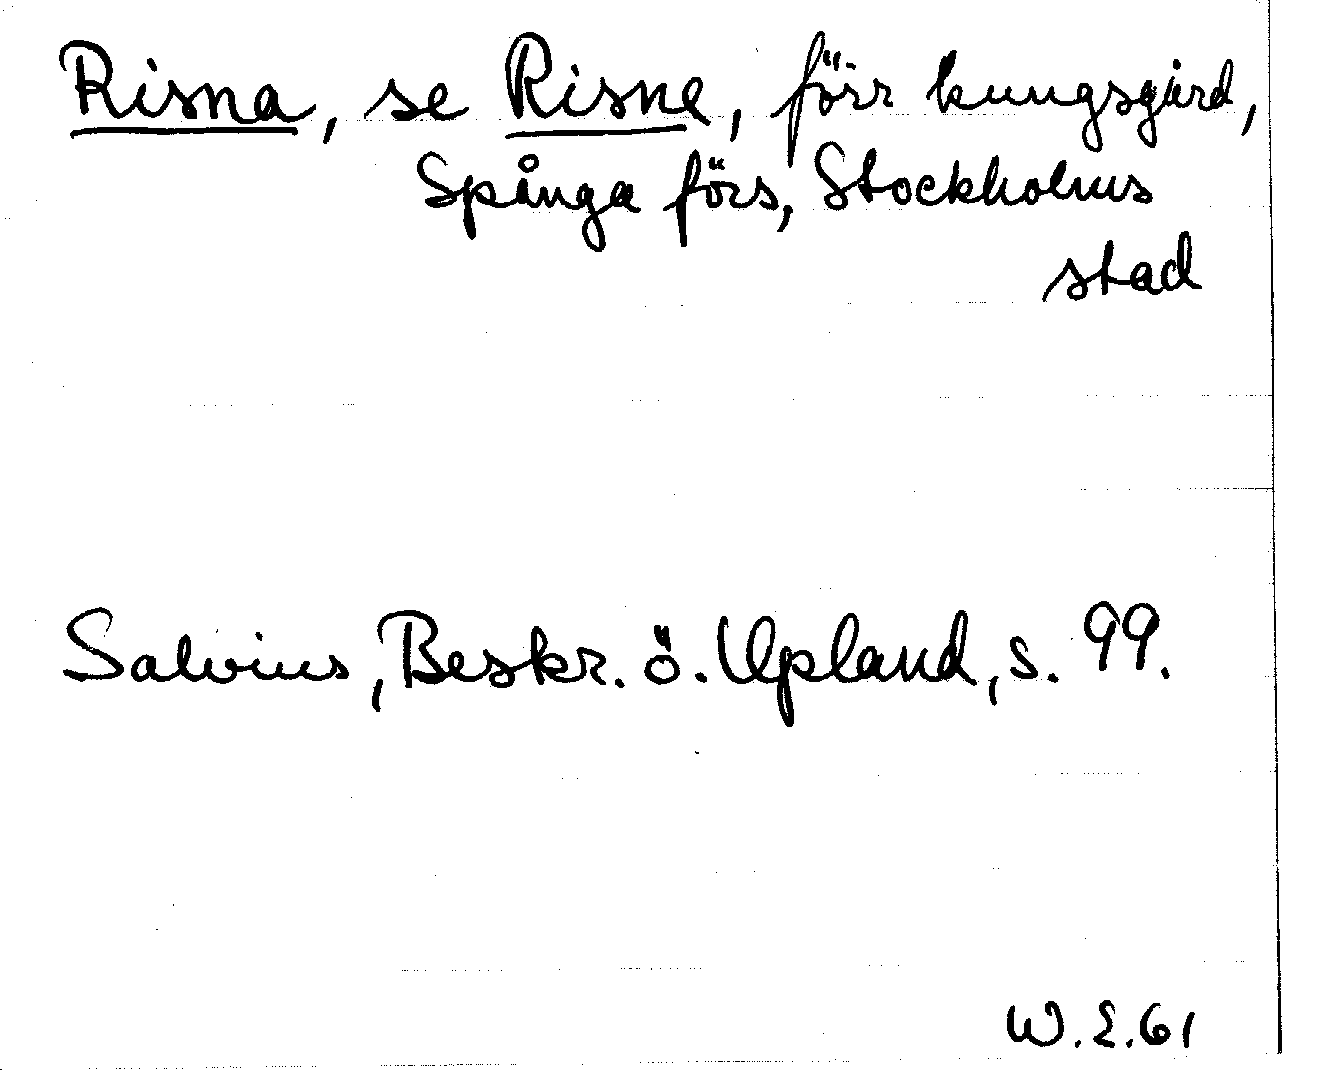 Risna, se Risne, förr kungsgård,
Spånga förs, Stockholms
stad
Salvius, Beskr. ö. Upland, s. 99.
W. E. 61